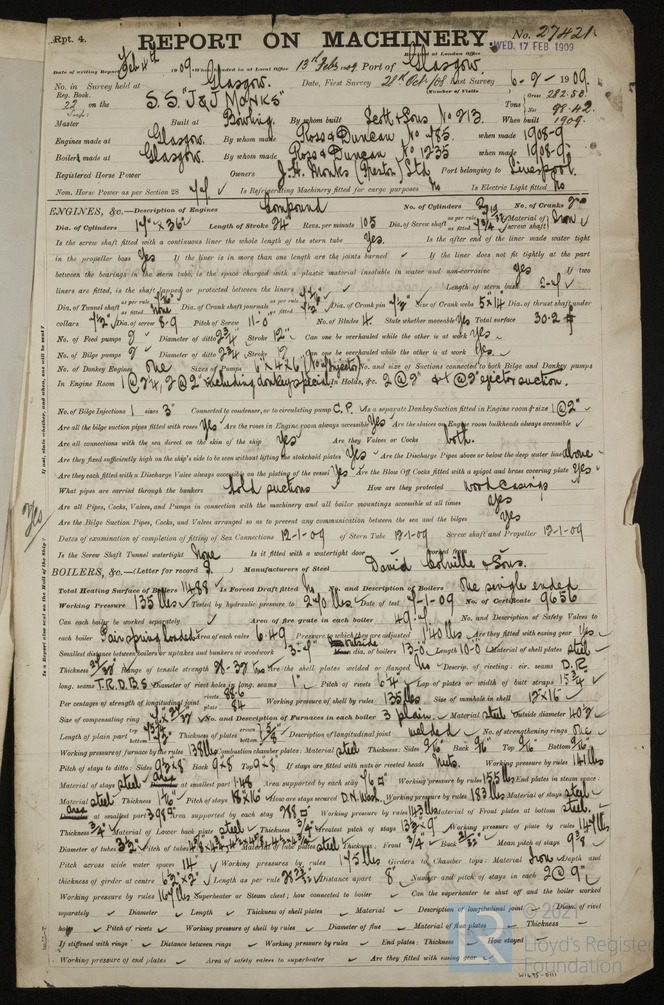 Rpt. 4.
REPORT ON MACHINERY.
No. 27421
WED. 17 FEB 1909
Date of writing Report Feb 4th 1909 When handed in at Local Office 13th Feb. 09 Port of Glasgow.
No. in Survey held at Glasgow. Date, First Survey 21st Oct/08 Last Survey 6-2-1909.
Reg. Book. (Number of Visits
22 on the S.S. "J & J MONKS" Tons Gross 282.50 Net 99.42
Master Built at Bowling. By whom built Scott & Sons No 213 When built 1909.
Engines made at Glasgow. By whom made Ross & Duncan No 785 when made 1908-9
Boilers made at Glasgow. By whom made Ross & Duncan No 1235 when made 1908-9.
Registered Horse Power Owners J. H. Monks (Preston) Ltd Port belonging to Liverpool.
Nom. Horse Power as per Section 28 44 Is Refrigerating Machinery fitted for cargo purposes No Is Electric Light fitted No
ENGINES, &c.—Description of Engines Compound No. of Cylinders No. of Cranks
Dia. of Cylinders 17" x 36" Length of Stroke 24" Revs. per minute 105 Dia. of Screw shaft as per rule as fitted Material of screw shaft Iron
Is the screw shaft fitted with a continuous liner the whole length of the stern tube Yes. Is the after end of the liner made water tight
in the propeller boss Yes If the liner is in more than one length are the joints burned If the liner does not fit tightly at the part
between the bearings in the stern tube, is the space charged with a plastic material insoluble in water and non-corrosive Yes If two
liners are fitted, is the shaft lapped or protected between the liners Length of stern bush
Dia. of Tunnel shaft as per rule as fitted None Dia. of Crank shaft journals as per rule as fitted Dia. of Crank pin 7½" Size of Crank webs 5 x 14 Dia. of thrust shaft under
collars 7½" Dia. of screw 8-9 Pitch of Screw 11-0 No. of Blades 4 State whether moveable Yes Total surface 30.2
No. of Feed pumps 2 Diameter of ditto 2¾ Stroke 12" Can one be overhauled while the other is at work Yes
No. of Bilge pumps 2 Diameter of ditto 2¾ Stroke 12 Can one be overhauled while the other is at work Yes
No. of Donkey Engines One Sizes of Pumps 6 x 4 x 6 No. and size of Suctions connected to both Bilge and Donkey pumps
In Engine Room including donkey special In Holds, &c. 2 @ 2" & 1 @ 3" ejector suction.
No. of Bilge Injections 1 sizes 3" Connected to condenser, or to circulating pump C.P. Is a separate Donkey Suction fitted in Engine room & size 1 @ 2"
Are all the bilge suction pipes fitted with roses Yes Are the roses in Engine room always accessible Yes Are the sluices on Engine room bulkheads always accessible
Are all connections with the sea direct on the skin of the ship Yes Are they Valves or Cocks both.
Are they fixed sufficiently high on the ship's side to be seen without lifting the stokehold plates Yes Are the Discharge Pipes above or below the deep water line above
Are they each fitted with a Discharge Valve always accessible on the plating of the vessel Yes Are the Blow Off Cocks fitted with a spigot and brass covering plate Yes
What pipes are carried through the bunkers Hold suctions How are they protected Wood casings
Are all Pipes, Cocks, Valves, and Pumps in connection with the machinery and all boiler mountings accessible at all times Yes
Are the Bilge Suction Pipes, Cocks, and Valves arranged so as to prevent any communication between the sea and the bilges Yes
Dates of examination of completion of fitting of Sea Connections 12-1-09 of Stern Tube 12-1-09 Screw shaft and Propeller 12-1-09
Is the Screw Shaft Tunnel watertight None Is it fitted with a watertight door worked from
BOILERS, &c.—(Letter for record S.) Manufacturers of Steel David Colville & Sons.
Total Heating Surface of Boilers 1488 Is Forced Draft fitted No No. and Description of Boilers One single ended
Working Pressure 135 lbs Tested by hydraulic pressure to 270 lbs. Date of test 7-1-09 No. of Certificate 9656
Can each boiler be worked separately Area of fire grate in each boiler 49 No. and Description of Safety Valves to
each boiler Pair spring loaded Area of each valve 6.49 Pressure to which they are adjusted 140 lbs Are they fitted with easing gear Yes
Smallest distance between boilers or uptakes and bunkers or woodwork Outside dia. of boilers 13-0 Length 10-0 Material of shell plates steel
Thickness Range of tensile strength 28-32 tons Are the shell plates welded or flanged No Descrip. of riveting: cir. seams D.R.
long. seams T.R.D.B.S Diameter of rivet holes in long. seams 1" Pitch of rivets Lap of plates or width of butt straps
Per centages of strength of longitudinal joint rivets 88.2 plate 84 Working pressure of shell by rules 135 lbs Size of manhole in shell 12 x 16
Size of compensating ring No. and Description of Furnaces in each boiler 3 plain. Material steel Outside diameter
Length of plain part top bottom Thickness of plates crown bottom Description of longitudinal joint welded No. of strengthening rings one
Working pressure of furnace by the rules 138 lbs Combustion chamber plates: Material steel Thickness: Sides 9/16" Back 9/16" Top 9/16" Bottom
Pitch of stays to ditto: Sides Back 9 x 8 Top 9 x 8 If stays are fitted with nuts or riveted heads Nuts. Working pressure by rules 141 lbs
Material of stays steel at smallest part 1.48 Area supported by each stay 76 Working pressure by rules 155 lbs End plates in steam space:
Material steel Thickness Pitch of stays 18 x 16 How are stays secured D.N. Wash. Working pressure by rules 183 lbs Material of stays steel
at smallest part 3.989 Area supported by each stay 288 Working pressure by rules 143 lbs Material of Front plates at bottom steel.
Thickness ¾" Material of Lower back plate steel Thickness Greatest pitch of stays Working pressure of plate by rules 147 lbs
Diameter of tubes 3½ Pitch of tubes Material of tube plates steel Thickness: Front ¾ Back Mean pitch of stays
Pitch across wide water spaces 14" Working pressures by rules 175 lbs Girders to Chamber tops: Material Iron Depth and
thickness of girder at centre Length as per rule Distance apart 8" Number and pitch of stays in each 2 @ 9"
Working pressure by rules 164 lbs Superheater or Steam chest; how connected to boiler Can the superheater be shut off and the boiler worked
separately Diameter Length Thickness of shell plates Material Description of longitudinal joint Diam. of rivet
holes Pitch of rivets Working pressure of shell by rules Diameter of flue Material of flue plates Thickness
If stiffened with rings Distance between rings Working pressure by rules End plates: Thickness How stayed
Working pressure of end plates Area of safety valves to superheater Are they fitted with easing gear
Yes
© 2021
Lloyd's Register
Foundation
W1695-0111